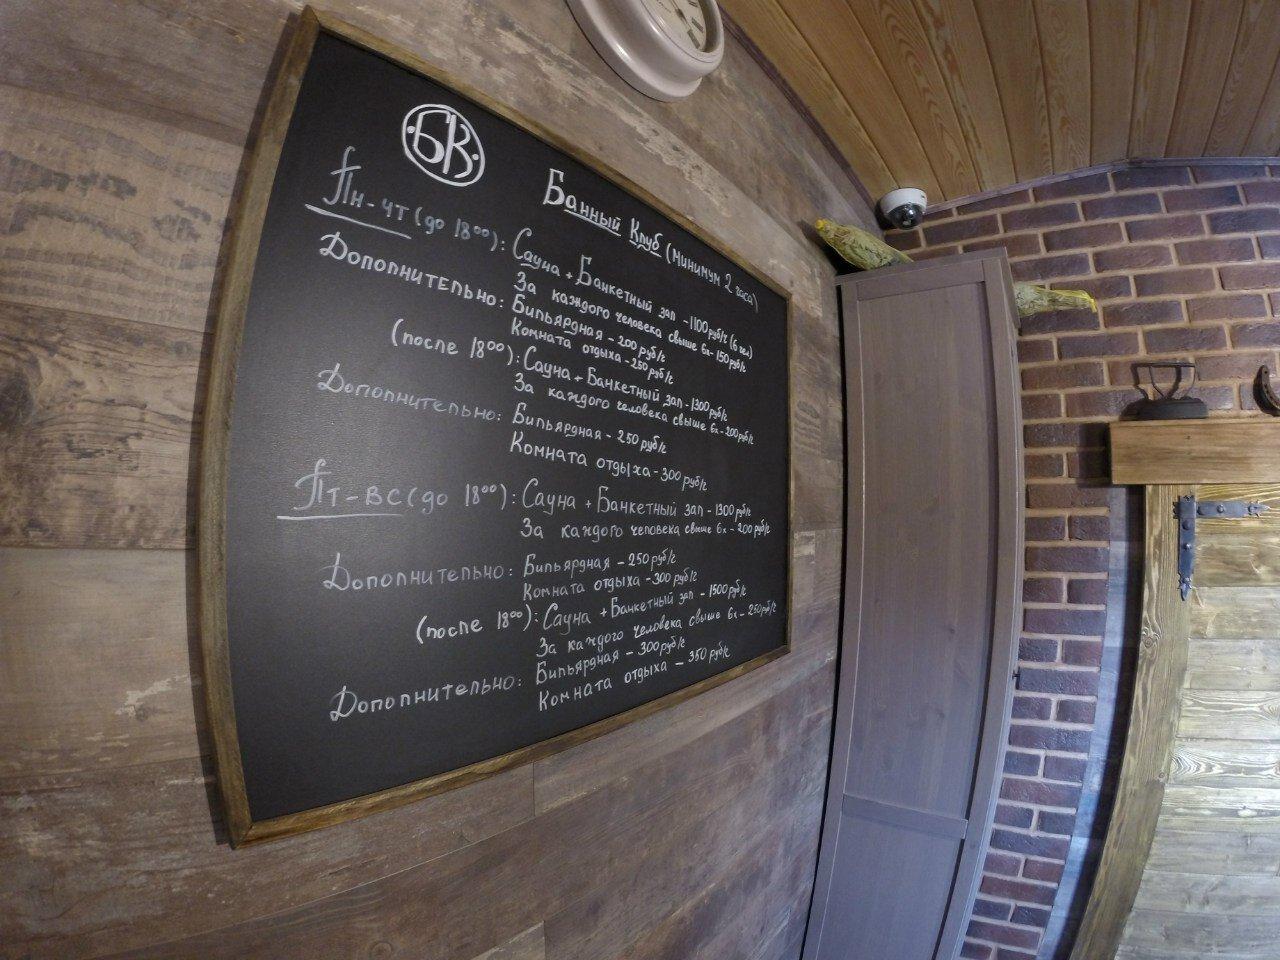 БК
Банный Клуб (минимум 2 часа)
Пн-Чт (до 18⁰⁰): Сауна + Банкетный зал - 1100 руб/ч (6 чел)
За каждого человека свыше 6х - 150 руб/ч
Дополнительно: Бильярдная - 200 руб/ч
Комната отдыха - 250 руб/ч
(после 18⁰⁰): Сауна + Банкетный зал - 1300 руб/ч
За каждого человека свыше 6х - 200 руб/ч
Дополнительно: Бильярдная - 250 руб/ч
Комната отдыха - 300 руб/ч
Пт-Вс (до 18⁰⁰): Сауна + Банкетный зал - 1300 руб/ч
За каждого человека свыше 6х - 200 руб/ч
Дополнительно: Бильярдная - 250 руб/ч
Комната отдыха - 300 руб/ч
(после 18⁰⁰): Сауна + Банкетный зал - 1500 руб/ч
За каждого человека свыше 6х - 250 руб/ч
Дополнительно: Бильярдная - 300 руб/ч
Комната отдыха - 350 руб/ч